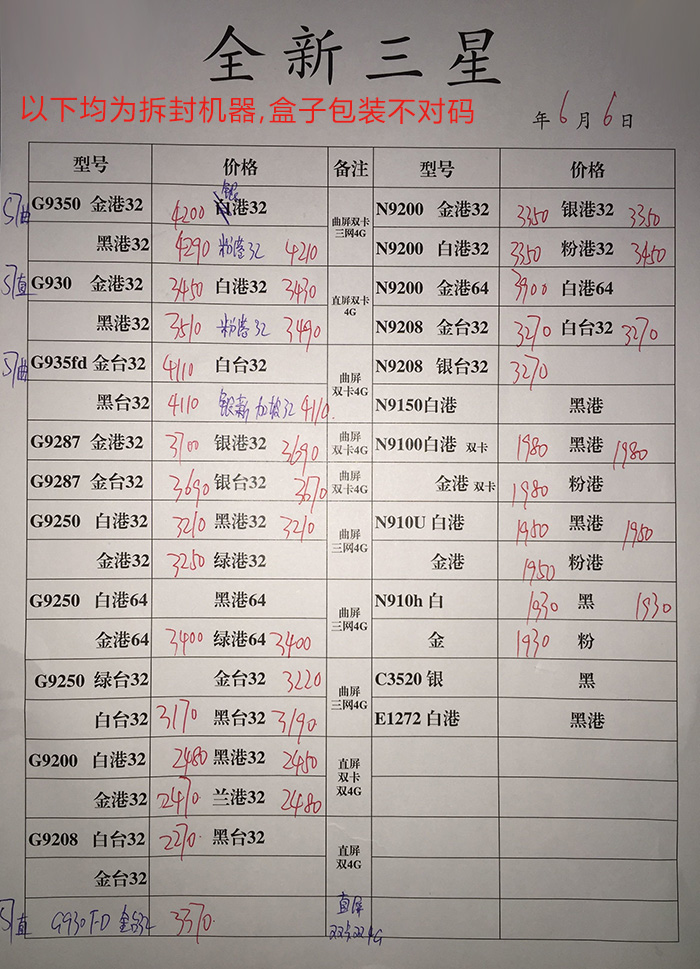 全新三星
以下均为拆封机器,盒子包装不对码
年6月6日
型号 价格 备注 型号 价格
S7曲 G9350 金港32 4200 银港32 曲屏双卡三网4G N9200 金港32 3350 银港32 3350
黑港32 4290 粉港32 4210 N9200 白港32 3350 粉港32 3450
S7直 G930 金港32 3450 白港32 3430 直屏双卡4G N9200 金港64 3900 白港64
黑港32 3510 粉港32 3490 N9208 金台32 3270 白台32 3270
S7曲 G935fd 金台32 4110 白台32 曲屏双卡4G N9208 银台32 3270
黑台32 4110 银 32 4110 N9150白港 黑港
G9287 金港32 3700 银港32 3690 曲屏双卡4G N9100白港 双卡 1980 黑港 1980
G9287 金台32 3690 银台32 3670 曲屏双卡4G 金港 双卡 1980 粉港
G9250 白港32 3210 黑港32 3210 曲屏三网4G N910U 白港 1950 黑港 1950
金港32 3250 绿港32 金港 1950 粉港
G9250 白港64 黑港64 曲屏三网4G N910h 白 1930 黑 1930
金港64 3400 绿港64 3400 金 1930 粉
G9250 绿台32 金台32 3220 曲屏三网4G C3520 银 黑
白台32 3170 黑台32 3190 E1272 白港 黑港
G9200 白港32 2480 黑港32 2450 直屏双卡双4G
金港32 2470 兰港32 2480
G9208 白台32 2270 黑台32 直屏双4G
金台32
S7直 G930FD 金台32 3370 直屏双卡双4G